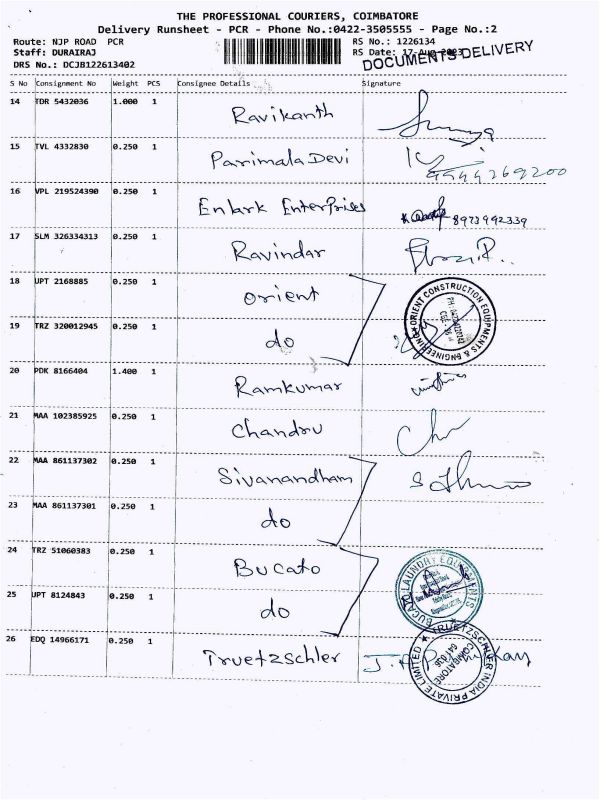 THE PROFESSIONAL COURIERS, COIMBATORE
Delivery Runsheet - PCR - Phone No.:0422-3505555 - Page No.:2
Route: NJP ROAD PCR RS No.: 1226134
Staff: DURAIRAJ RS Date: 17-Aug-2023
DOCUMENTS DELIVERY
DRS No.: DCJB122613402
S No Consignment No Weight PCS Consignee Details Signature
14 TDR 5432036 1.000 1 Ravikanth
15 TVL 4332830 0.250 1 Parimala Devi 9944269200
16 VPL 219524390 0.250 1 Enlark Enterprises 8973992339
17 SLM 326334313 0.250 1 Ravindar
18 UPT 2168885 0.250 1 Orient
ORIENT CONSTRUCTION EQUIPMENTS & ENGINEERING
19 TRZ 320012945 0.250 1 do
20 PDK 8166404 1.400 1 Ramkumar
21 MAA 102385925 0.250 1 Chandru
22 MAA 861137302 0.250 1 Sivanandham
23 MAA 861137301 0.250 1 do
24 TRZ 51060383 0.250 1 Bucato
BUCATO LAUNDRY EQUIPMENTS
25 UPT 8124843 0.250 1 do
26 EDQ 14966171 0.250 1 Truetzschler
TRUETZSCHLER INDIA PRIVATE LIMITED
COIMBATORE